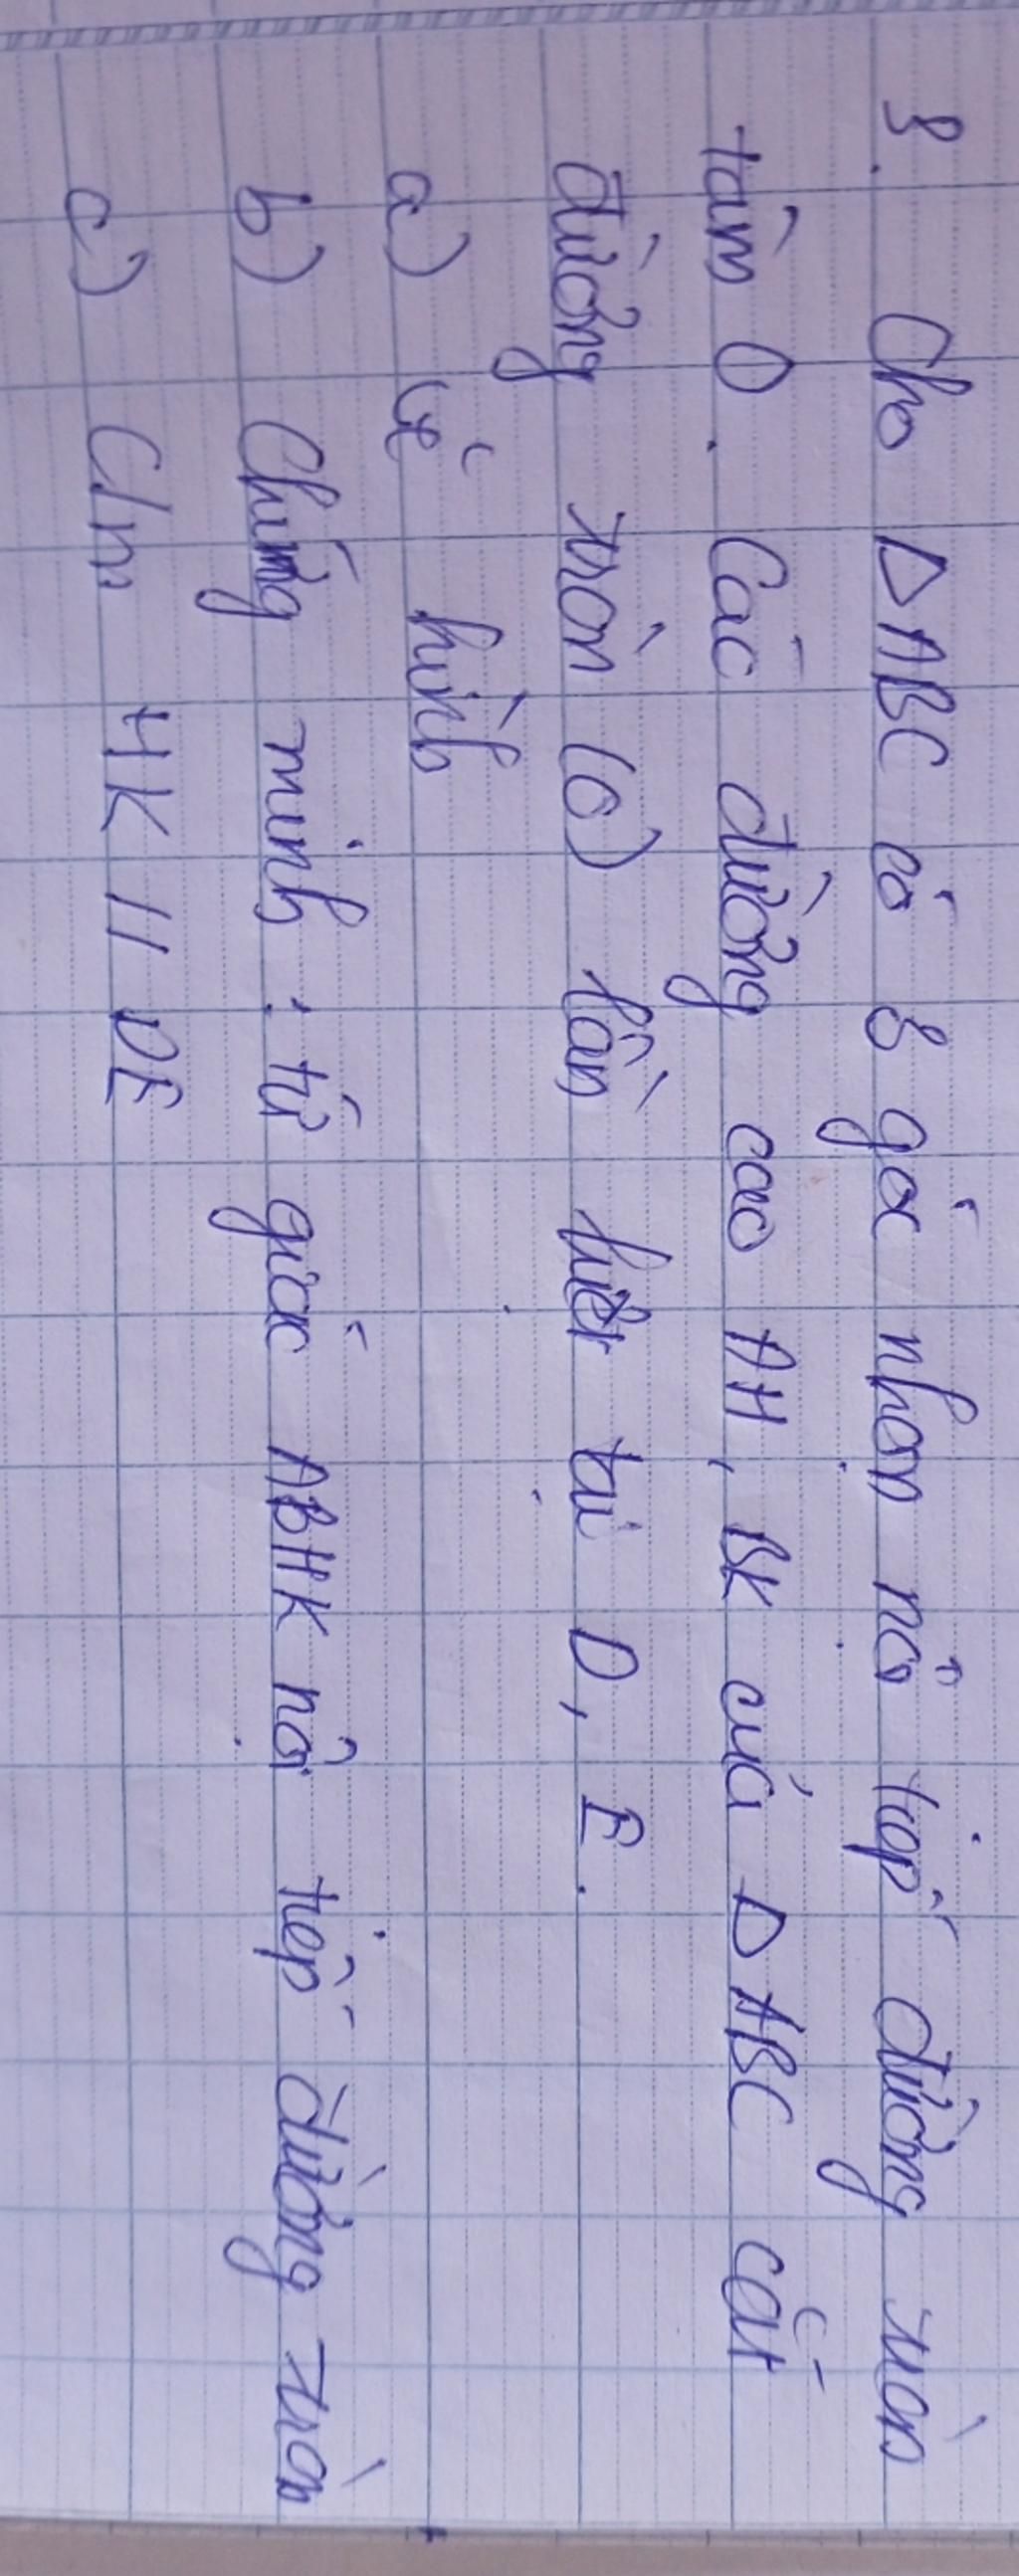 8. Cho ΔABC có 3 góc nhọn nội tiếp đường tròn
tâm O. Các đường cao AH, BK của ΔABC cắt
đường tròn (O) lần lượt tại D, E.
a) Vẽ hình
b) Chứng minh : tứ giác ABHK nội tiếp đường tròn
c) C/m HK // DE